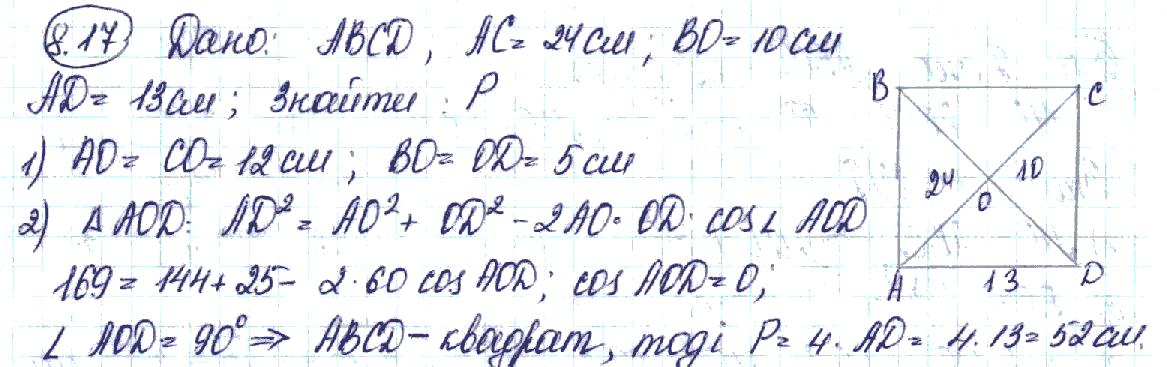 8.17 Дано: ABCD, AC = 24 см; BO = 10 см
AD = 13 см; Знайти: P
1) AO = CO = 12 см; BO = OD = 5 см
2) ΔAOD: AD² = AO² + OD² - 2AO · OD · cos∠ AOD
169 = 144 + 25 - 2·60 cos AOD; cos AOD = 0;
∠ AOD = 90° ⇒ ABCD - квадрат, тоді P = 4 · AD = 4 · 13 = 52 см.
B C
24 10
O
A 13 D